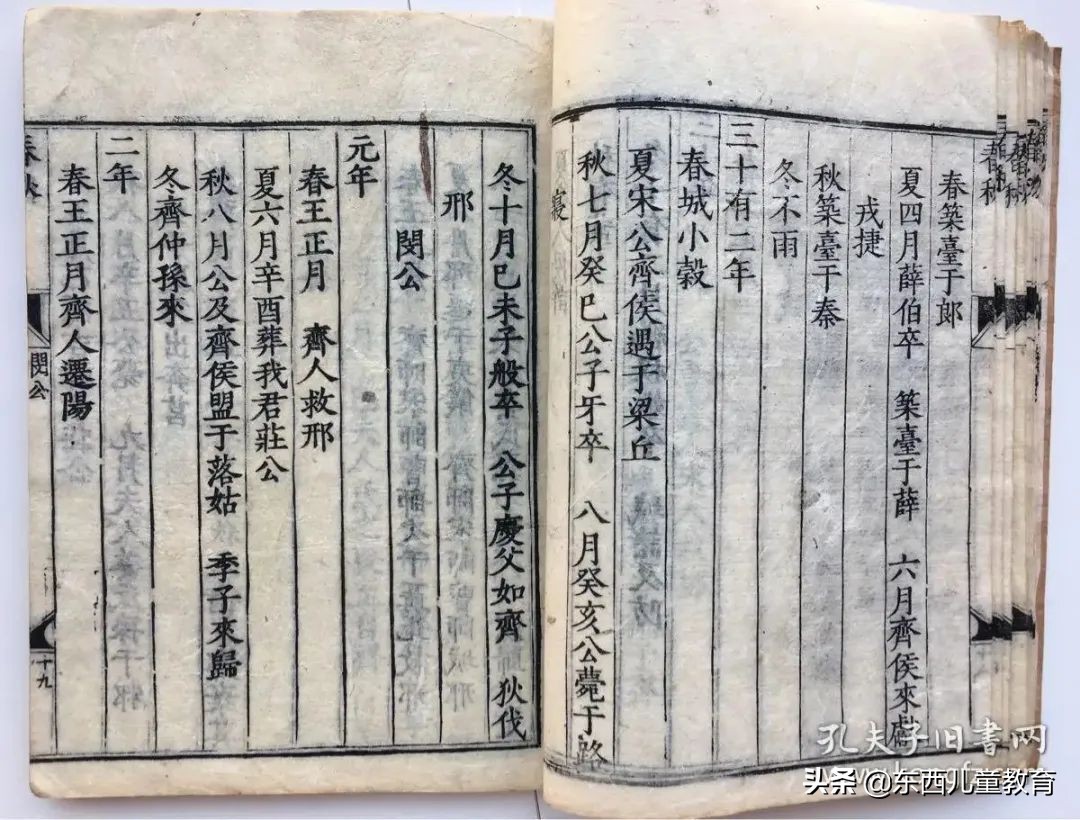 春築臺于郎
夏四月薛伯卒　築臺于薛　六月齊侯來獻
戎捷
秋築臺于秦
冬不雨
三十有二年
春城小穀
夏宋公齊侯遇于梁丘
秋七月癸巳公子牙卒　八月癸亥公薨于路
冬十月己未子般卒　公子慶父如齊　狄伐
邢
閔公
元年
春王正月　齊人救邢
夏六月辛酉葬我君莊公
秋八月公及齊侯盟于落姑　季子來歸
冬齊仲孫來
二年
春王正月齊人遷陽
春秋
閔公
十九
春秋
春秋
孔夫子旧书网
头条 @东西儿童教育